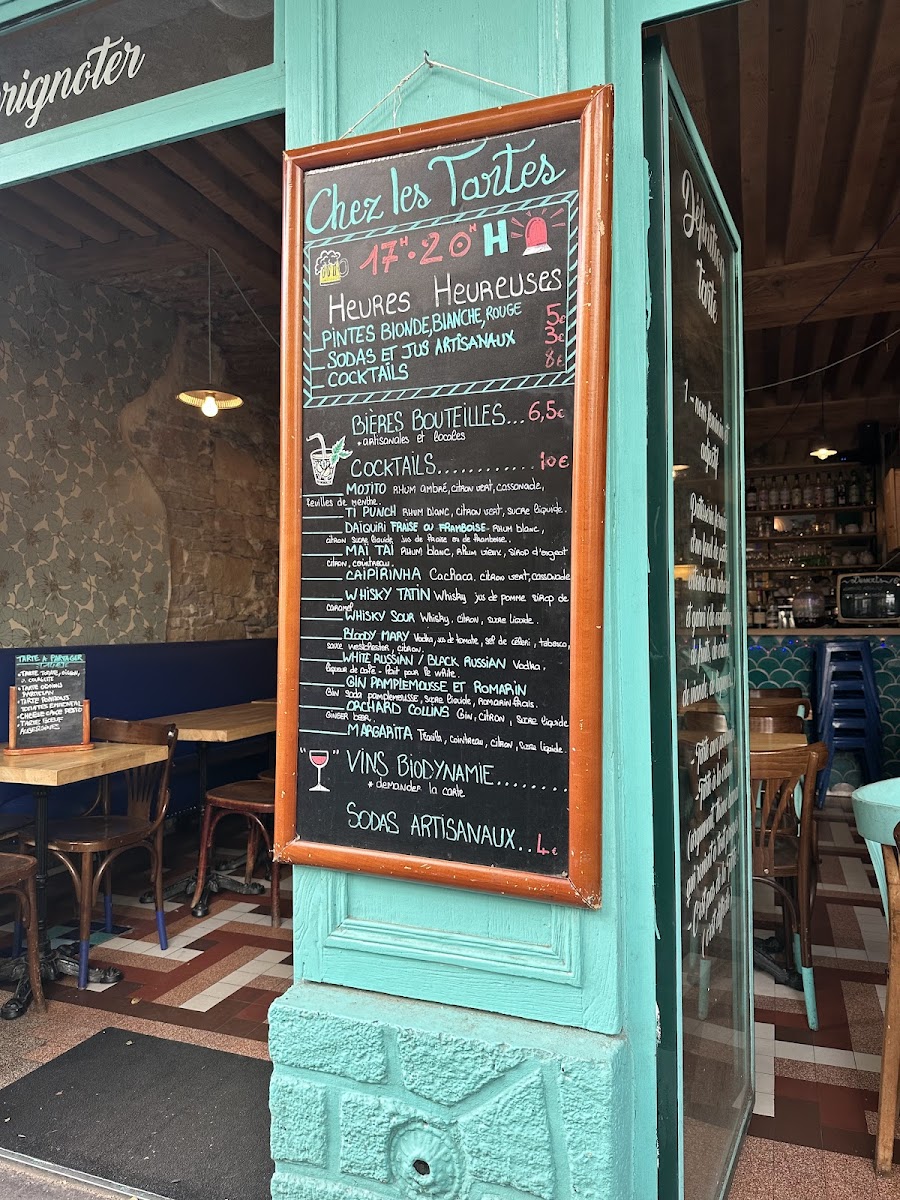 Chez les Tartes
17H·20H
Heures Heureuses
- PINTES BLONDE, BLANCHE, ROUGE 5€
- SODAS ET JUS ARTISANAUX 3€
- COCKTAILS 8€
BIÈRES BOUTEILLES... 6,5€
* artisanales et locales
COCKTAILS............ 10€
MOJITO RHUM ambré, citron vert, cassonade,
feuilles de menthe.
TI PUNCH RHUM blanc, citron vert, sucre liquide.
DAÏQUIRI FRAISE OU FRAMBOISE- RHUM blanc,
citron sucre liquide jus de fraise ou de framboise.
MAÏ TAI RHUM blanc, RHUM vieux, sirop d'orgeat
citron, cointreau.
CAIPIRINHA Cachaca, citron vert, cassonade
WHISKY TATIN Whisky jus de pomme sirop de
caramel
WHISKY SOUR Whisky, citron, sucre liquide.
BLOODY MARY Vodka, jus de tomate, sel de céleri, tabasco,
sauce, citron.
WHITE RUSSIAN / BLACK RUSSIAN Vodka.
liqueur de café - lait pour le white.
GIN PAMPLEMOUSSE ET ROMARIN
Gin soda pamplemousse, sucre liquide, romarin frais.
ORCHARD COLLINS Gin, citron, sucre liquide
GINGER beer.
MARGARITA Tequila, cointreau, citron, sucre liquide.
VINS BIODYNAMIE........
* demander la carte
SODAS ARTISANAUX.. 4€
rignoter
TARTE À PARTAGER
Définition
tarte
1 - nom féminin et
adjectif